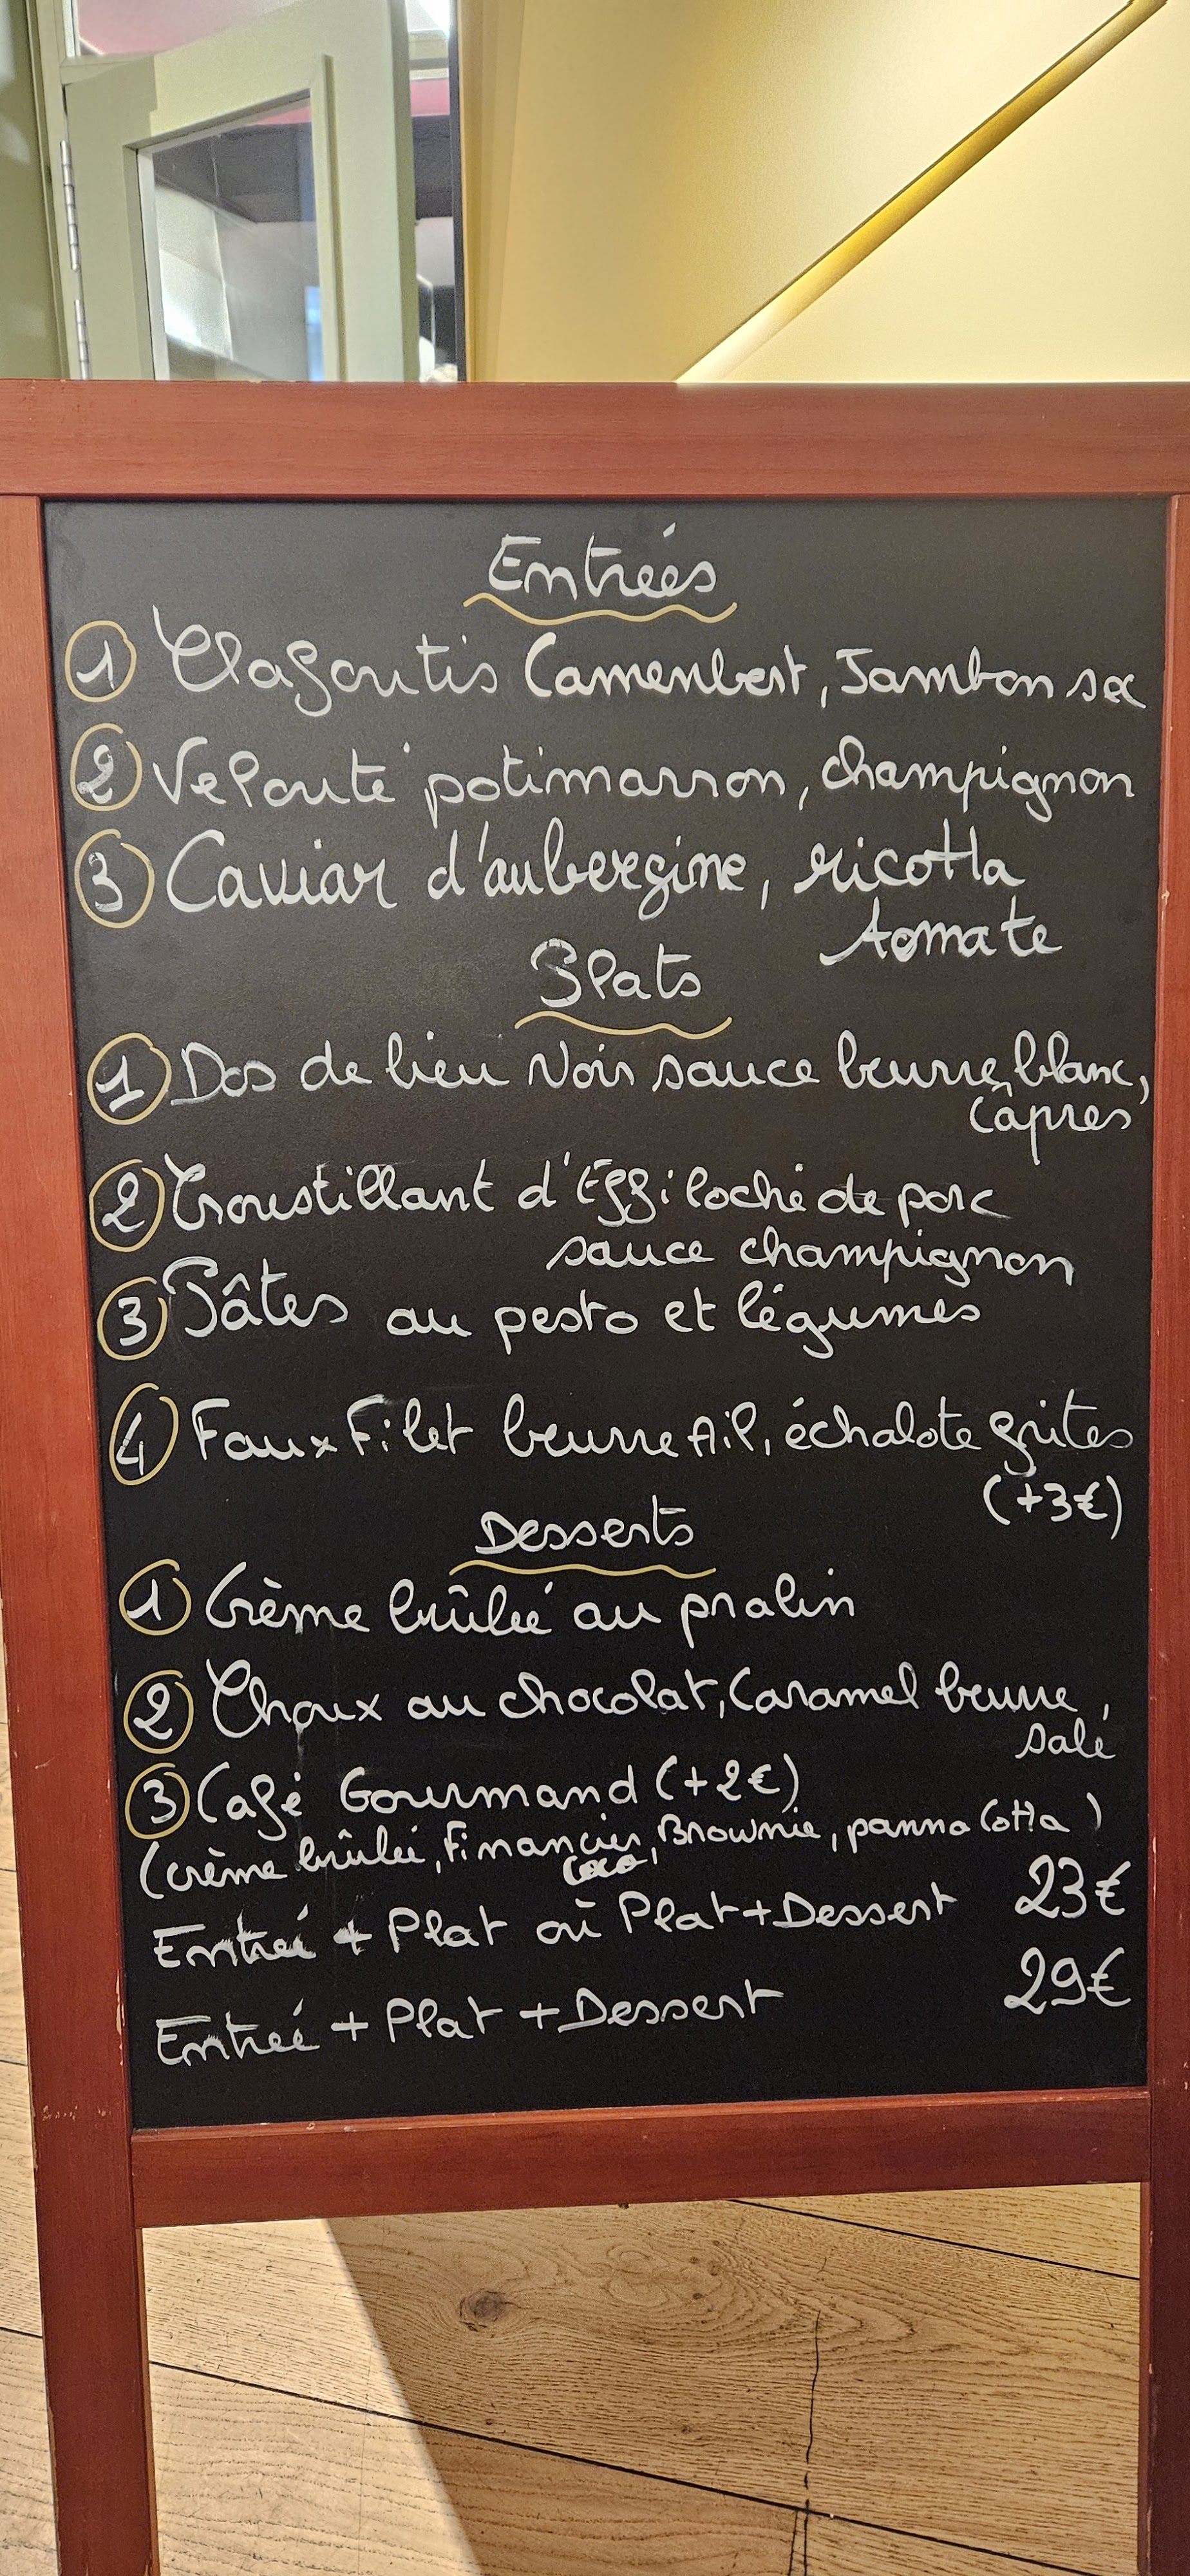 Entrées
1 Clafoutis Camenbert, Jambon sec
2 Velouté potimarron, champignon
3 Caviar d'aubergine, ricotta
tomate
Plats
1 Dos de lieu Noir sauce beurre blanc,
câpres
2 Croustillant d'Effiloché de porc
sauce champignon
3 Pâtes au pesto et légumes
4 Faux Filet beurre Ail, échalote frites
(+3€)
Desserts
1 Crème brûlée au pralin
2 Choux au chocolat, Caramel beurre
salé
3 Café Gourmand (+2€)
(crème brûlée, Financier, Brownie, panna Cotta)
coco
Entrée + Plat où Plat+Dessert 23€
Entrée + Plat + Dessert 29€